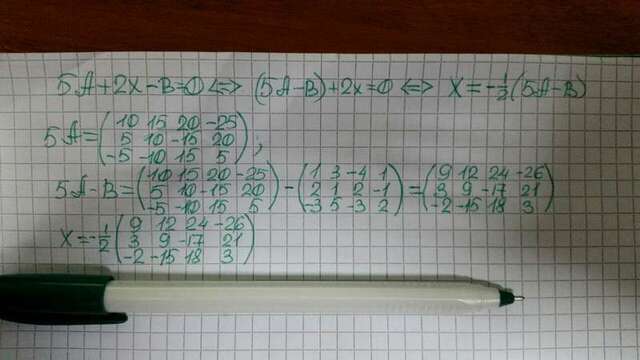 5A+2X-B=0 <=> (5A-B)+2x=0 <=> X=-1/2(5A-B)
5A=(10 15 20 -25
5 10 -15 20
-5 -10 15 5);
5A-B=(10 15 20 -25
5 10 -15 20
-5 -10 15 5)-(1 3 -4 1
2 1 2 -1
-3 5 -3 2)=(9 12 24 -26
3 9 -17 21
-2 -15 18 3)
X=-1/2(9 12 24 -26
3 9 -17 21
-2 -15 18 3)